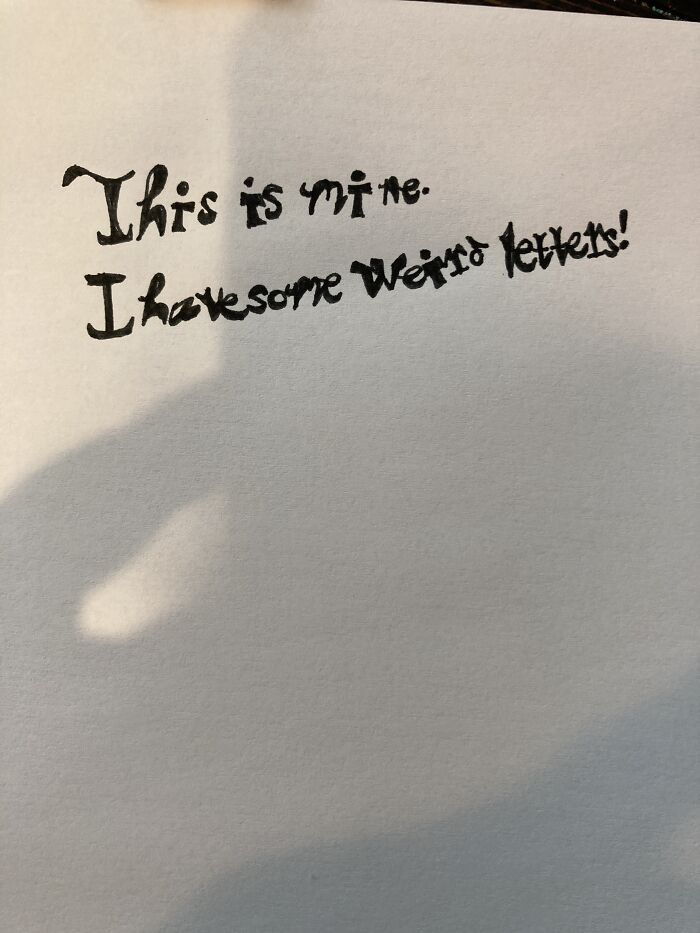 This is mine.
I have some weird letters!